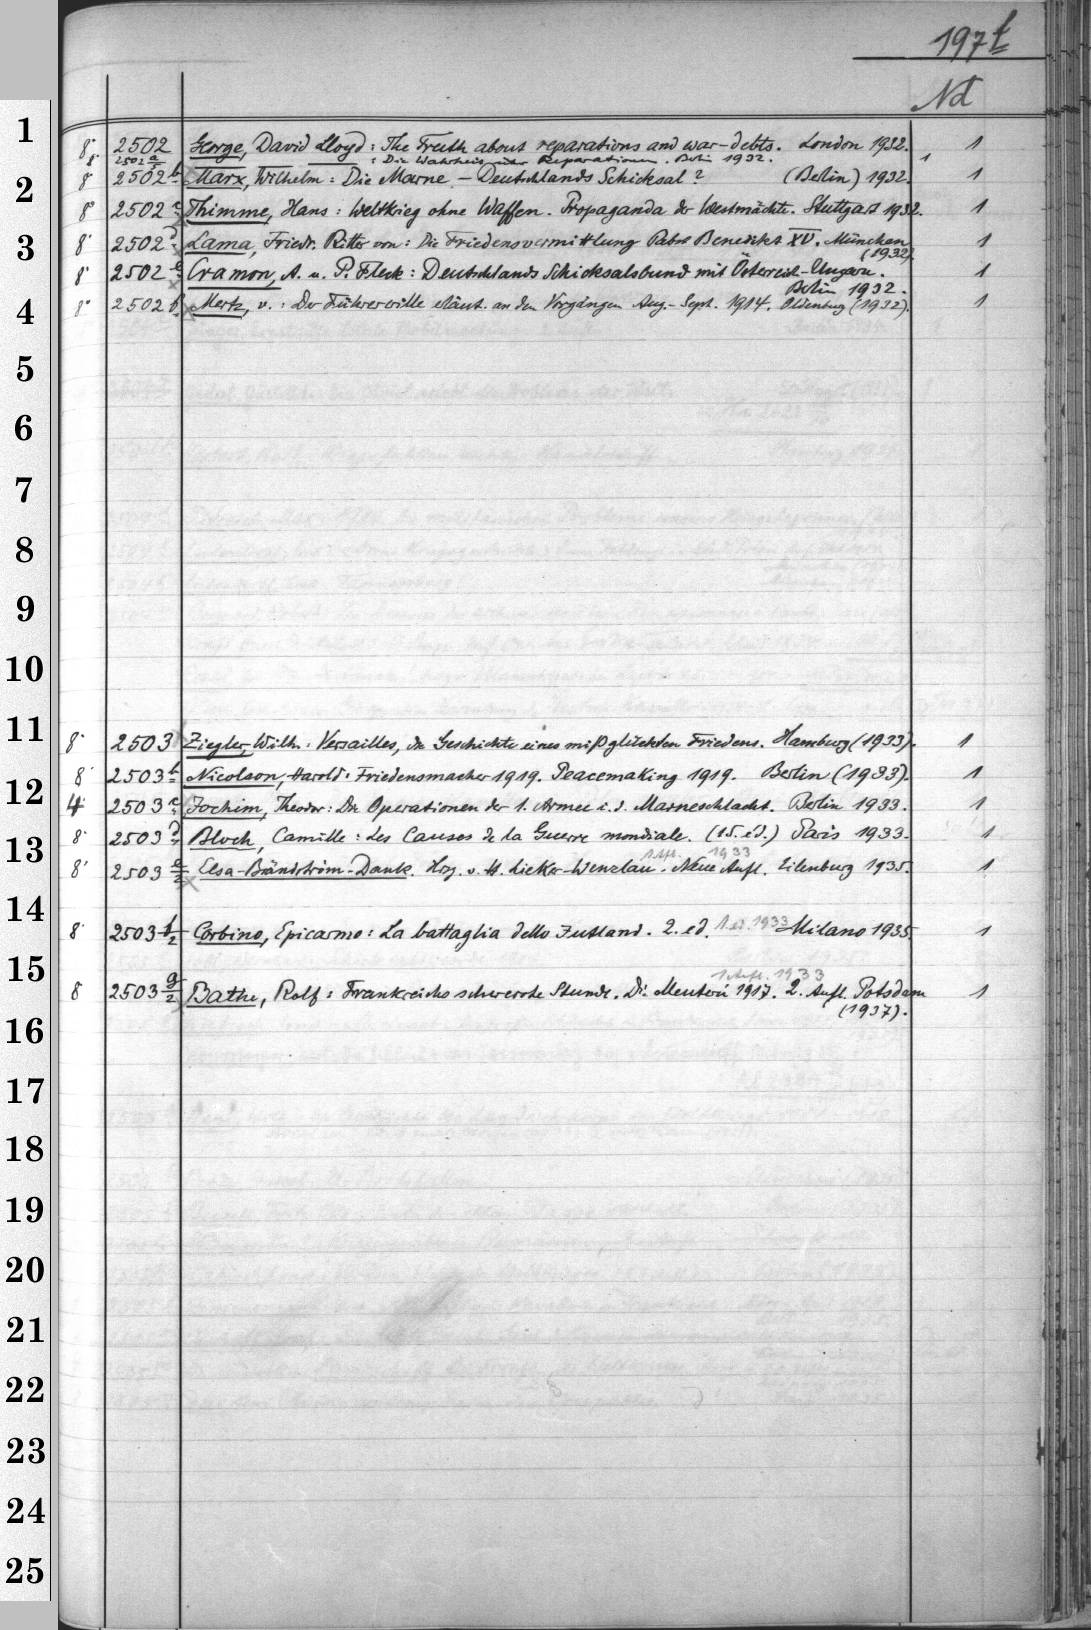 197f
Nd
1
8° 2502 George, David Lloyd: The Truth about reparations and war-debts. London 1932. 1
8° 2502 a/2 : Die Wahrheit über Reparationen. Berlin 1932. 1
2
8° 2502 b Marx, Wilhelm: Die Marne – Deutschlands Schicksal? (Berlin) 1932. 1
8° 2502 c Thimme, Hans: Weltkrieg ohne Waffen. Propaganda der Westmächte. Stuttgart 1932. 1
3
8° 2502 d Lama, Friedr. Ritter von: Die Friedensvermittlung Papst Benedikt XV. München 1
(1932)
8° 2502 e Cramon, A. u. P. Fleck: Deutschlands Schicksalsbund mit Österreich-Ungarn. 1
Berlin 1932.
4
8° 2502 f Mertz, v.: Der Führerwille erläut. an den Vorgängen Aug.-Sept. 1914. Oldenburg (1932). 1
5
6
7
8
9
10
11
8° 2503 Ziegler, Wilh.: Versailles, die Geschichte eines mißglückten Friedens. Hamburg (1933). 1
8° 2503 b Nicolson, Harold: Friedensmacher 1919. Peacemaking 1919. Berlin (1933). 1
12
4° 2503 c Jochim, Theodor: Die Operationen der 1. Armee i. d. Marneschlacht. Berlin 1933. 1
8° 2503 d Bloch, Camille: Les Causes de la Guerre mondiale. (15. éd.) Paris 1933. 1
13
1. Aufl. 1933
8° 2503 e/2 Elsa-Brändström-Dank. Hrg. v. H. Lieker-Wenzlau. Neue Aufl. Eilenburg 1935. 1
14
8° 2503 f/2 Corbino, Epicarmo: La battaglia dello Jutland. 2. ed. 1 ed. 1933 Milano 1935. 1
15
1. Aufl. 1933
8° 2503 g/2 Bathe, Rolf: Frankreichs schwerste Stunde. Die Meuterei 1917. 2. Aufl. Potsdam 1
(1937).
16
17
18
19
20
21
22
23
24
25